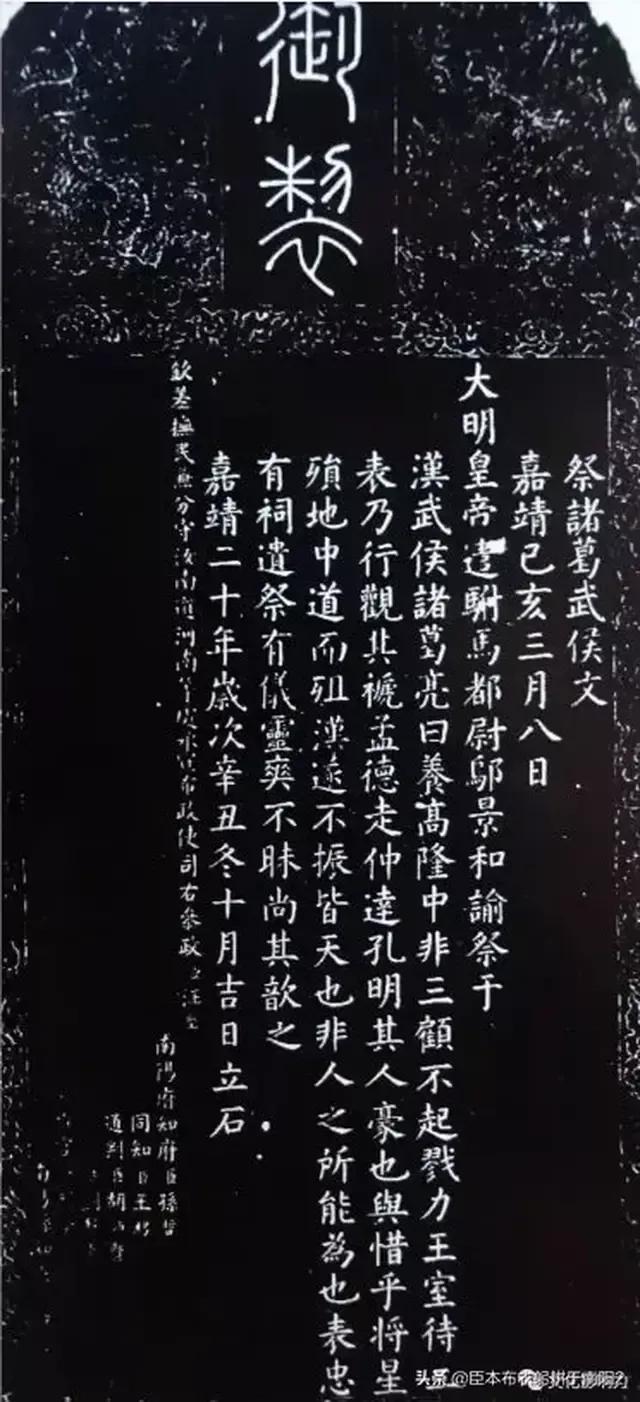 御製
祭諸葛武侯文
嘉靖己亥三月八日
大明皇帝遣駙馬都尉鄔景和諭祭于
漢武侯諸葛亮曰養高隆中非三顧不起戮力王室待二
表乃行觀其褫孟德走仲達孔明其人豪也與惜乎将星
殞地中道而殂漢遂不振皆天也非人之所能為也表忠
有祠遣祭有儀靈爽不昧尚其歆之
嘉靖二十年歲次辛丑冬十月吉日立石
欽差撫民兼分守汝南道河南等處承宣布政使司右參政臣汪
南陽府知府臣孫哲
同知臣王
通判臣胡
头条@臣本布衣躬耕于南阳2
文化影响力